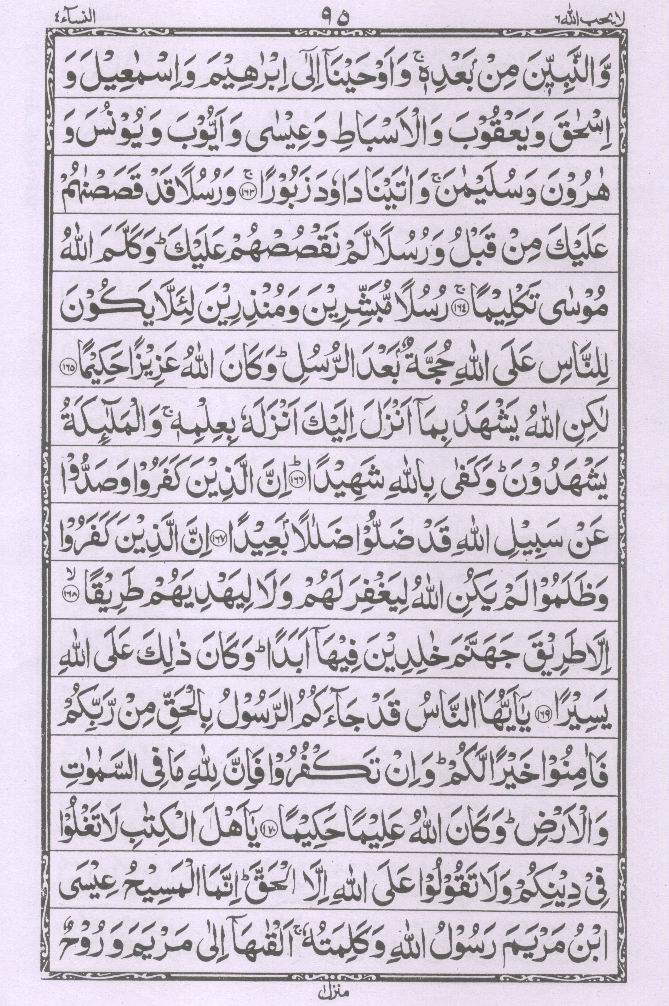 لا یحب الله ٦ ٩٥ النسآء ٤
وَّالنَّبِيّٖنَ مِنْۢ بَعْدِهٖ ۚ وَاَوْحَيْنَاۤ اِلٰۤى اِبْرٰهِيْمَ وَاِسْمٰعِيْلَ وَ
اِسْحٰقَ وَيَعْقُوْبَ وَالْاَسْبَاطِ وَعِيْسٰى وَاَيُّوْبَ وَيُوْنُسَ وَ
هٰرُوْنَ وَسُلَيْمٰنَ ۚ وَاٰتَيْنَا دَاوٗدَ زَبُوْرًا ۚ ﴿١٦٣﴾ وَرُسُلًا قَدْ قَصَصْنٰهُمْ
عَلَيْكَ مِنْ قَبْلُ وَرُسُلًا لَّمْ نَقْصُصْهُمْ عَلَيْكَ ؕ وَكَلَّمَ اللّٰهُ
مُوْسٰى تَكْلِيْمًا ۚ ﴿١٦٤﴾ رُسُلًا مُّبَشِّرِيْنَ وَمُنْذِرِيْنَ لِئَلَّا يَكُوْنَ
لِلنَّاسِ عَلَى اللّٰهِ حُجَّةٌۢ بَعْدَ الرُّسُلِ ؕ وَكَانَ اللّٰهُ عَزِيْزًا حَكِيْمًا ﴿١٦٥﴾
لٰكِنِ اللّٰهُ يَشْهَدُ بِمَاۤ اَنْزَلَ اِلَيْكَ اَنْزَلَهٗ بِعِلْمِهٖ ۚ وَالْمَلٰٓئِكَةُ
يَشْهَدُوْنَ ؕ وَكَفٰى بِاللّٰهِ شَهِيْدًا ؕ ﴿١٦٦﴾ اِنَّ الَّذِيْنَ كَفَرُوْا وَصَدُّوْا
عَنْ سَبِيْلِ اللّٰهِ قَدْ ضَلُّوْا ضَلٰلًاۢ بَعِيْدًا ﴿١٦٧﴾ اِنَّ الَّذِيْنَ كَفَرُوْا
وَظَلَمُوْا لَمْ يَكُنِ اللّٰهُ لِيَغْفِرَ لَهُمْ وَلَا لِيَهْدِيَهُمْ طَرِيْقًا ۙ ﴿١٦٨﴾
اِلَّا طَرِيْقَ جَهَنَّمَ خٰلِدِيْنَ فِيْهَاۤ اَبَدًا ؕ وَكَانَ ذٰلِكَ عَلَى اللّٰهِ
يَسِيْرًا ﴿١٦٩﴾ يٰۤاَيُّهَا النَّاسُ قَدْ جَآءَكُمُ الرَّسُوْلُ بِالْحَقِّ مِنْ رَّبِّكُمْ
فَاٰمِنُوْا خَيْرًا لَّكُمْ ؕ وَاِنْ تَكْفُرُوْا فَاِنَّ لِلّٰهِ مَا فِى السَّمٰوٰتِ
وَالْاَرْضِ ؕ وَكَانَ اللّٰهُ عَلِيْمًا حَكِيْمًا ﴿١٧٠﴾ يٰۤاَهْلَ الْكِتٰبِ لَا تَغْلُوْا
فِىْ دِيْنِكُمْ وَلَا تَقُوْلُوْا عَلَى اللّٰهِ اِلَّا الْحَقَّ ؕ اِنَّمَا الْمَسِيْحُ عِيْسَى
ابْنُ مَرْيَمَ رَسُوْلُ اللّٰهِ وَكَلِمَتُهٗ ۚ اَلْقٰىهَاۤ اِلٰى مَرْيَمَ وَرُوْحٌ
منزل ١